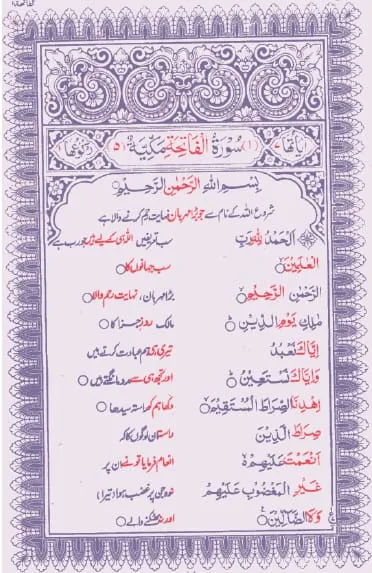 الفاتحة ١
اٰیاتُھَا ٧ (١) سُوْرَةُ الْفَاتِحَةِ مَكِّيَّةٌ (٥) رُكُوْعُهَا ١
بِسْمِ اللّٰهِ الرَّحْمٰنِ الرَّحِيْمِ
شروع اللہ کے نام سے جو بڑا مہربان نہایت رحم کرنے والا ہے
اَلْحَمْدُ لِلّٰهِ رَبِّ سب تعریفیں اللہ ہی کے لیے ہیں جو رب ہے
الْعٰلَمِيْنَ سب جہانوں کا
الرَّحْمٰنِ الرَّحِيْمِ بڑا مہربان، نہایت رحم والا
مٰلِكِ يَوْمِ الدِّيْنِ مالک روز جزا کا
اِيَّاكَ نَعْبُدُ تیری ہی ہم عبادت کرتے ہیں
وَاِيَّاكَ نَسْتَعِيْنُ اور تجھ ہی سے مدد مانگتے ہیں
اِهْدِنَا الصِّرَاطَ الْمُسْتَقِيْمَ دکھا ہم کو راستہ سیدھا
صِرَاطَ الَّذِيْنَ راستہ ان لوگوں کا کہ
اَنْعَمْتَ عَلَيْهِمْ انعام فرمایا تو نے ان پر
غَيْرِ الْمَغْضُوْبِ عَلَيْهِمْ نہ وہ جن پر غضب ہوا (تیرا)
وَلَا الضَّآلِّيْنَ اور نہ بھٹکنے والے